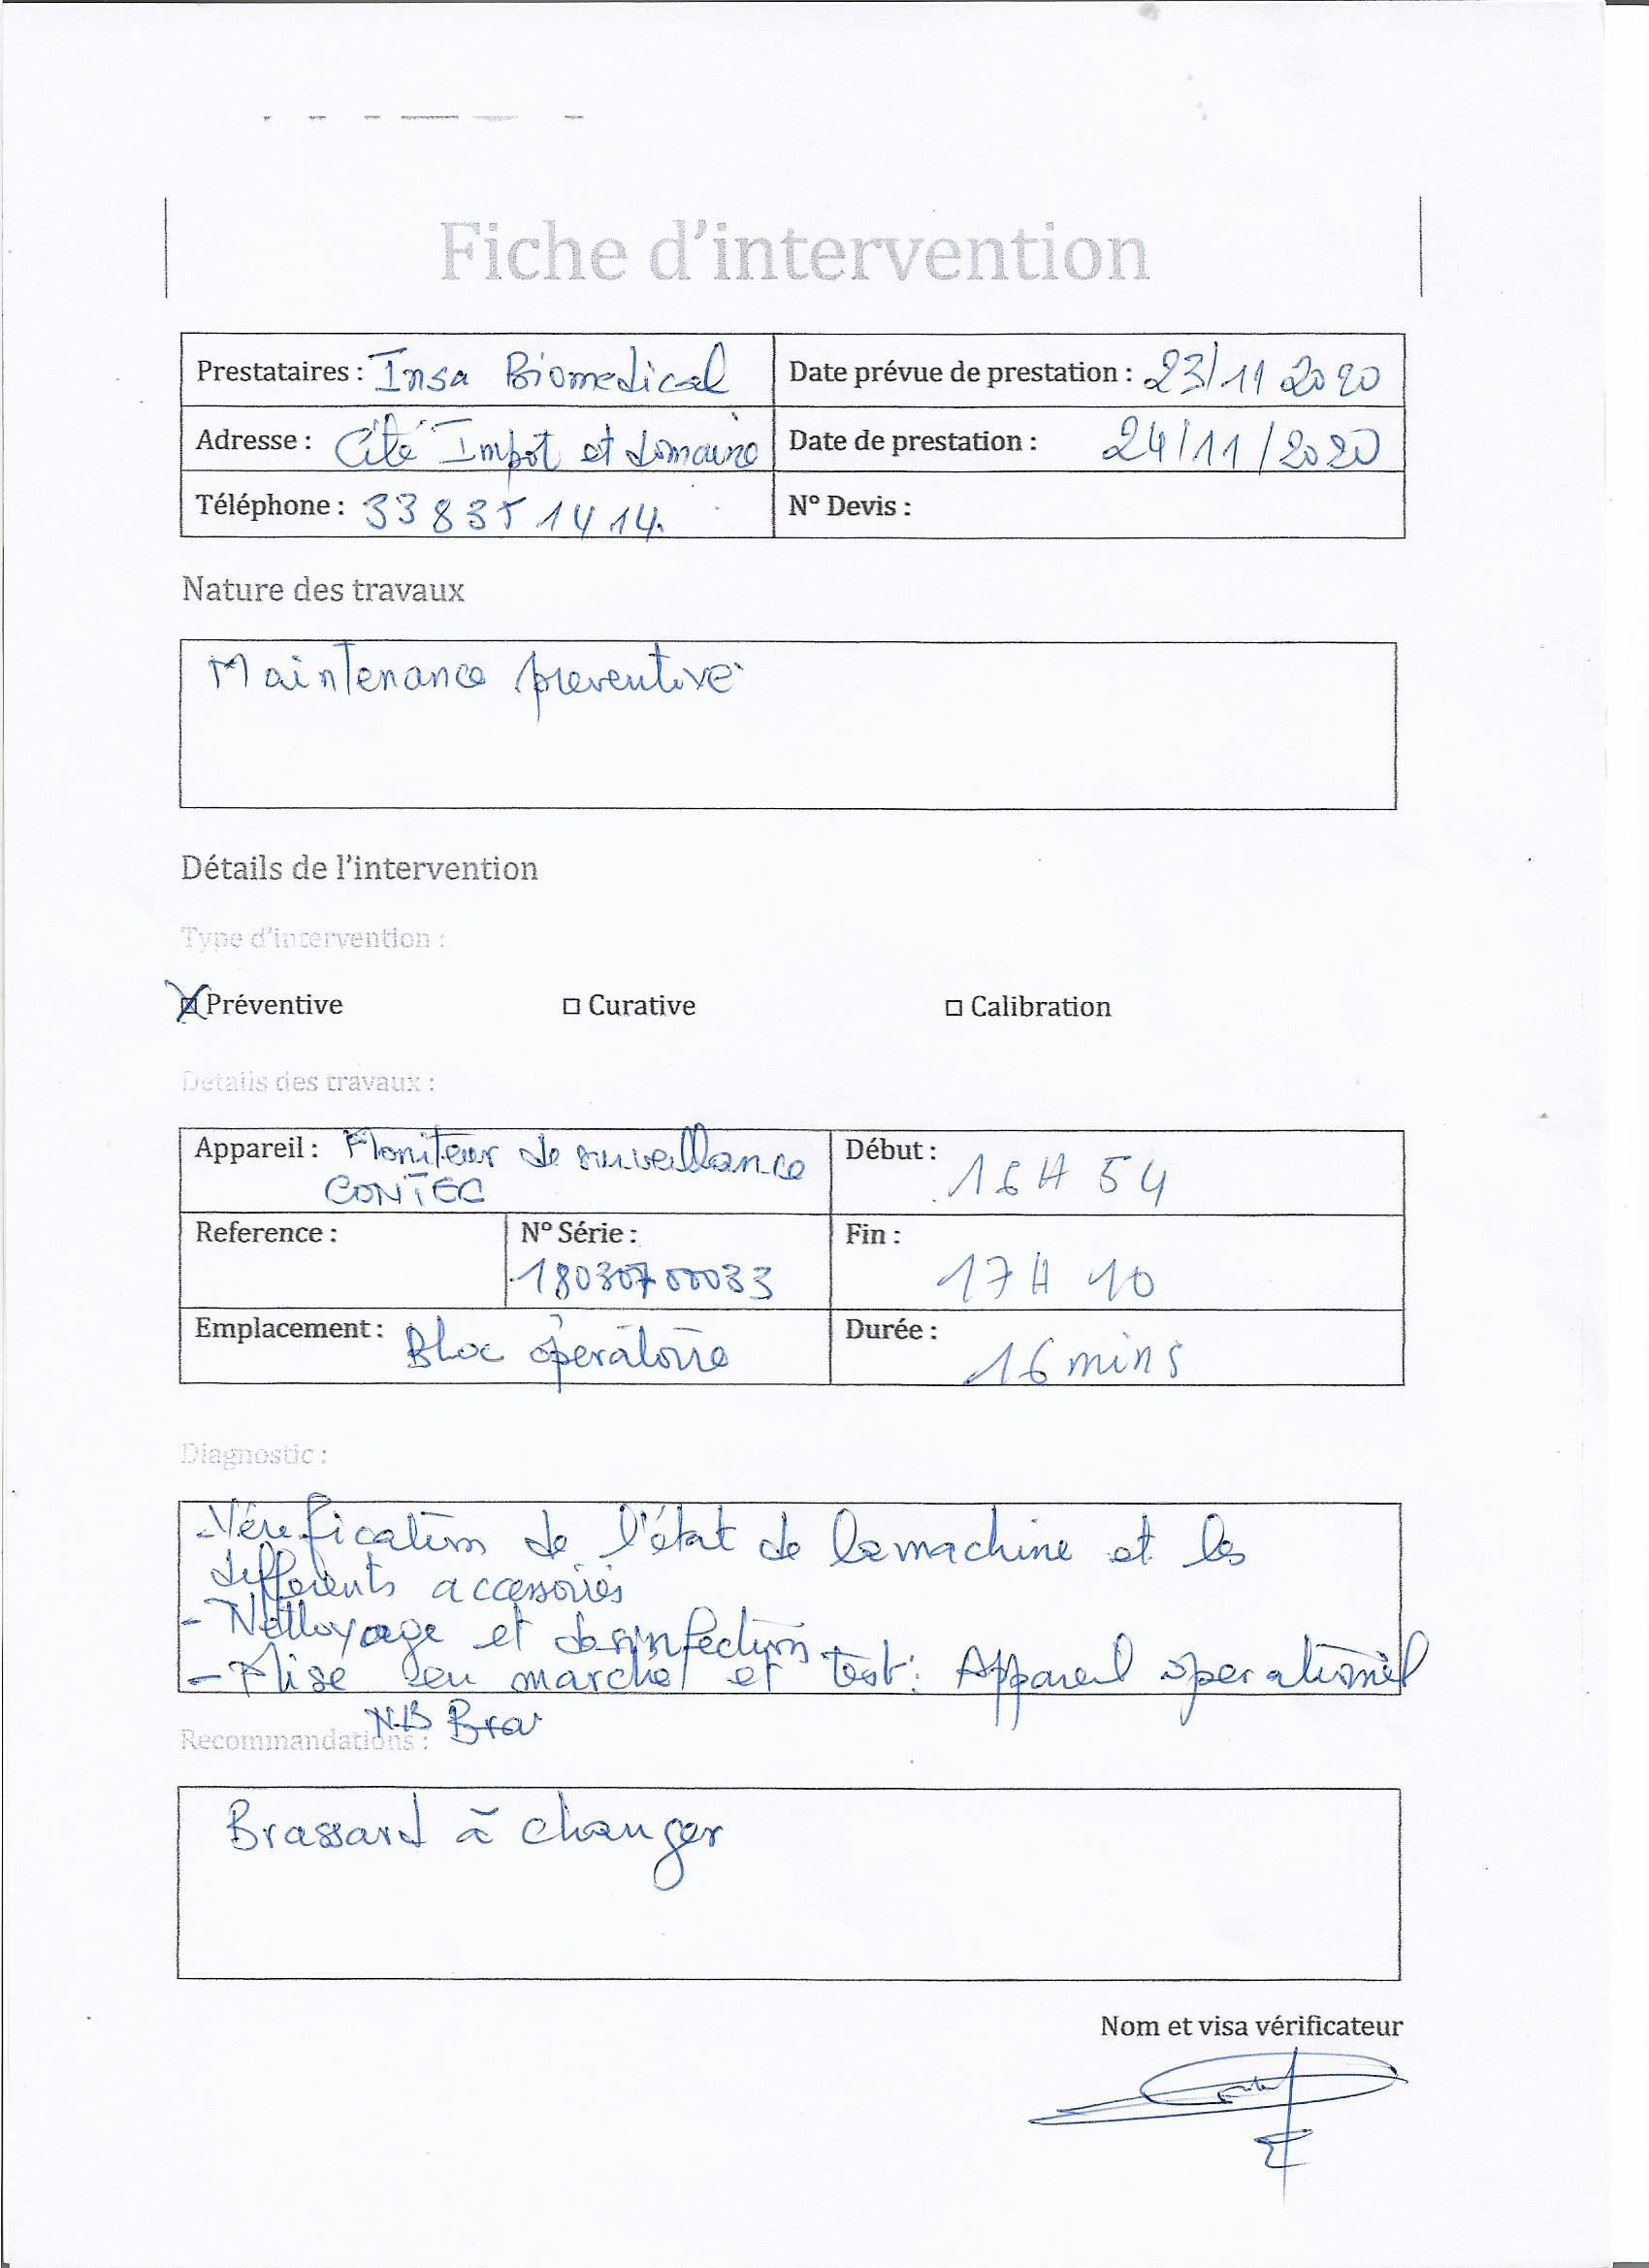 Fiche d'intervention
Prestataires : Insa Biomedical
Date prévue de prestation : 23/11 2020
Adresse : Cité Impot et domaine
Date de prestation : 24/11/2020
Téléphone : 33 835 14 14.
N° Devis :
Nature des travaux
Maintenance preventive
Détails de l'intervention
Type d'intervention :
Préventive
□ Curative
□ Calibration
Détails des travaux :
Appareil : Moniteur de surveillance
CONTEC
Début : 16H 54
Reference :
N° Série :
18030700033
Fin :
17H 10
Emplacement : Bloc operatoire
Durée : 16 mins
Diagnostic :
- Vérification de l'état de la machine et les
differents accessoires
- Nettoyage et desinfection
- Mise en marche et test : Appareil operationnel
NB Bra
Recommandations :
Brassard à changer
Nom et visa vérificateur